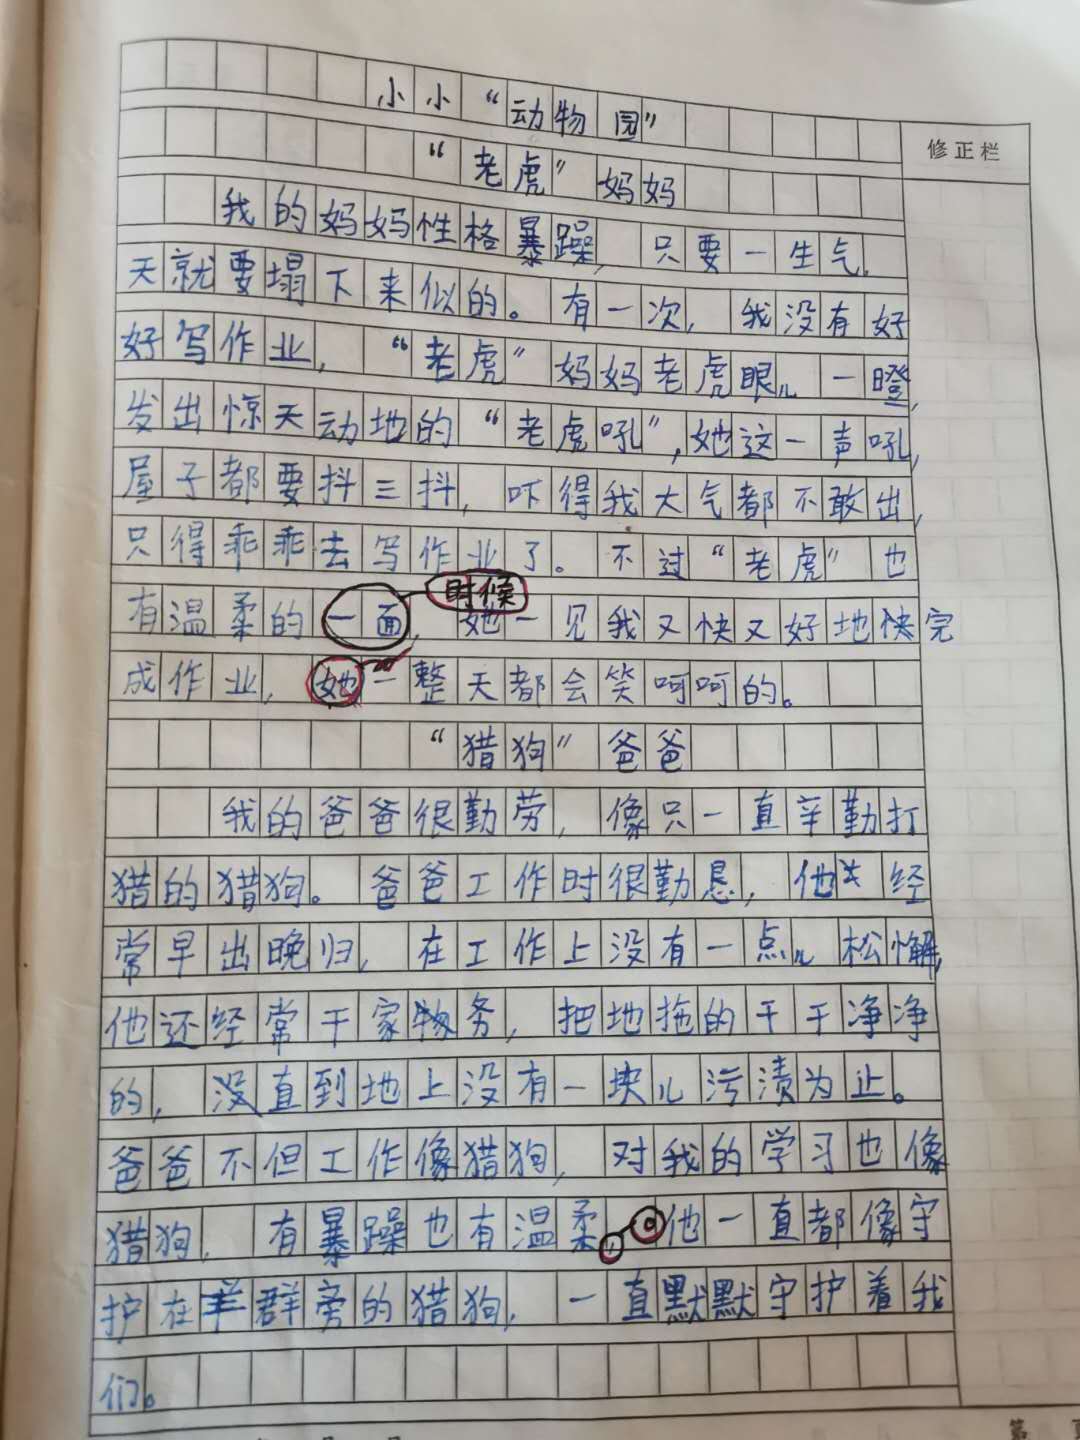 小小“动物园”
修正栏
“老虎”妈妈
我的妈妈性格暴躁,只要一生气,
天就要塌下来似的。有一次,我没有好
好写作业,“老虎”妈妈老虎眼儿一瞪,
发出惊天动地的“老虎吼”,她这一声吼,
屋子都要抖三抖,吓得我大气都不敢出,
只得乖乖去写作业了。不过“老虎”也
时候
有温柔的一面,她一见我又快又好地快完
成作业,她一整天都会笑呵呵的。
“猎狗”爸爸
我的爸爸很勤劳,像只一直辛勤打
猎的猎狗。爸爸工作时很勤恳,他经
常早出晚归,在工作上没有一点儿松懈,
他还经常干家务,把地拖的干干净净
的,直到地上没有一块儿污渍为止。
爸爸不但工作像猎狗,对我的学习也像
猎狗,有暴躁也有温柔,。他一直都像守
护在羊群旁的猎狗,一直默默守护着我
们。
第 页